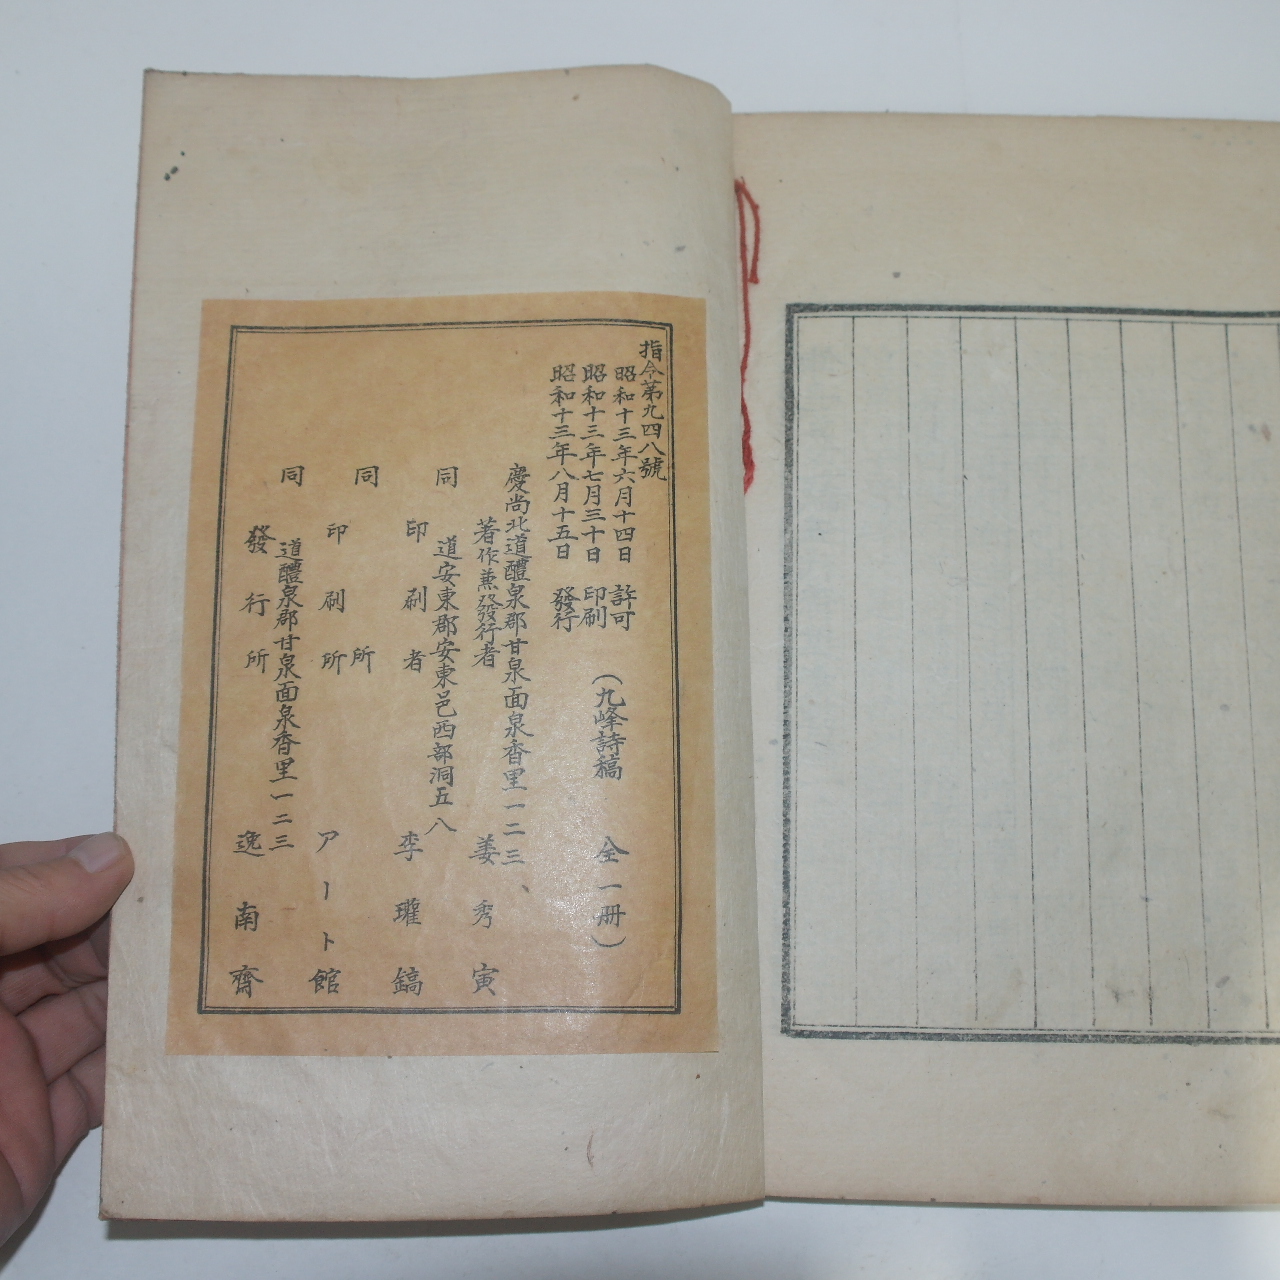 指令第九四八號
昭和十三年六月十四日 許可
昭和十三年七月三十日 印刷
昭和十三年八月十五日 發行
(九峰詩稿 全一冊)
慶尚北道醴泉郡甘泉面泉香里一二三、
著作兼發行者 姜秀寅
同 道安東郡安東邑西部洞五八
印刷者 李瓘鎬
同 所
印刷所 アート館
同 道醴泉郡甘泉面泉香里一二三
發行所 逸南齋